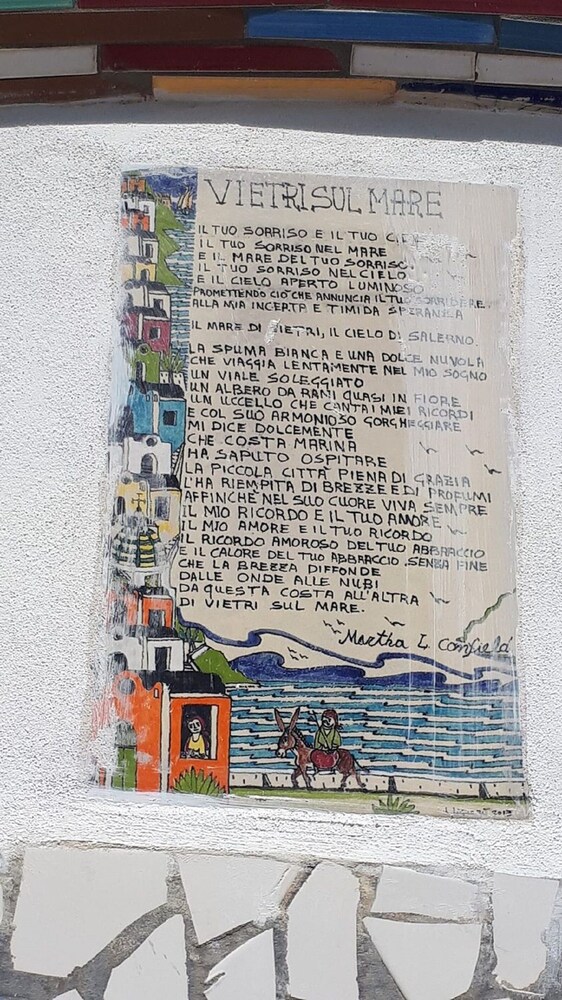 VIETRI SUL MARE
IL TUO SORRISO E IL TUO
IL TUO SORRISO NEL MARE
E IL MARE DEL TUO SORRISO.
IL TUO SORRISO NEL CIELO
E IL CIELO APERTO LUMINOSO
PROMETTENDO CIÒ CHE ANNUNCIA IL TUO SORRIDERE
ALLA MIA INCERTA E TIMIDA SPERANZA
IL MARE DI VIETRI, IL CIELO DI SALERNO.
LA SPUMA BIANCA E UNA DOLCE NUVOLA
CHE VIAGGIA LENTAMENTE NEL MIO SOGNO
UN VIALE SOLEGGIATO
UN ALBERO DA RAMI QUASI IN FIORE
UN UCCELLO CHE CANTA I MIEI RICORDI
E COL SUO ARMONIOSO GORGHEGGIARE
MI DICE DOLCEMENTE
CHE COSTA MARINA
HA SAPUTO OSPITARE
LA PICCOLA CITTÀ PIENA DI GRAZIA
L'HA RIEMPITA DI BREZZE E DI PROFUMI
AFFINCHÈ NEL SUO CUORE VIVA SEMPRE
IL MIO RICORDO E IL TUO AMORE
IL MIO AMORE E IL TUO RICORDO
IL RICORDO AMOROSO DEL TUO ABBRACCIO
E IL CALORE DEL TUO ABBRACCIO SENZA FINE
CHE LA BREZZA DIFFONDE
DALLE ONDE ALLE NUBI
DA QUESTA COSTA ALL'ALTRA
DI VIETRI SUL MARE.
Martha L Canfield